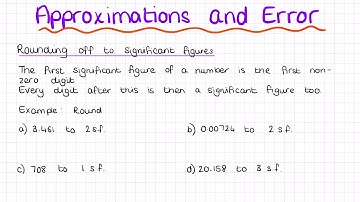 Approximations and Error
Rounding off to significant figures
The first significant figure of a number is the first non-
zero digit
Every digit after this is then a significant figure too.
Example: Round
a) 3.461 to 2 s.f.
b) 0.00724 to 2 s.f.
c) 708 to 1 s.f.
d) 20.158 to 3 s.f.